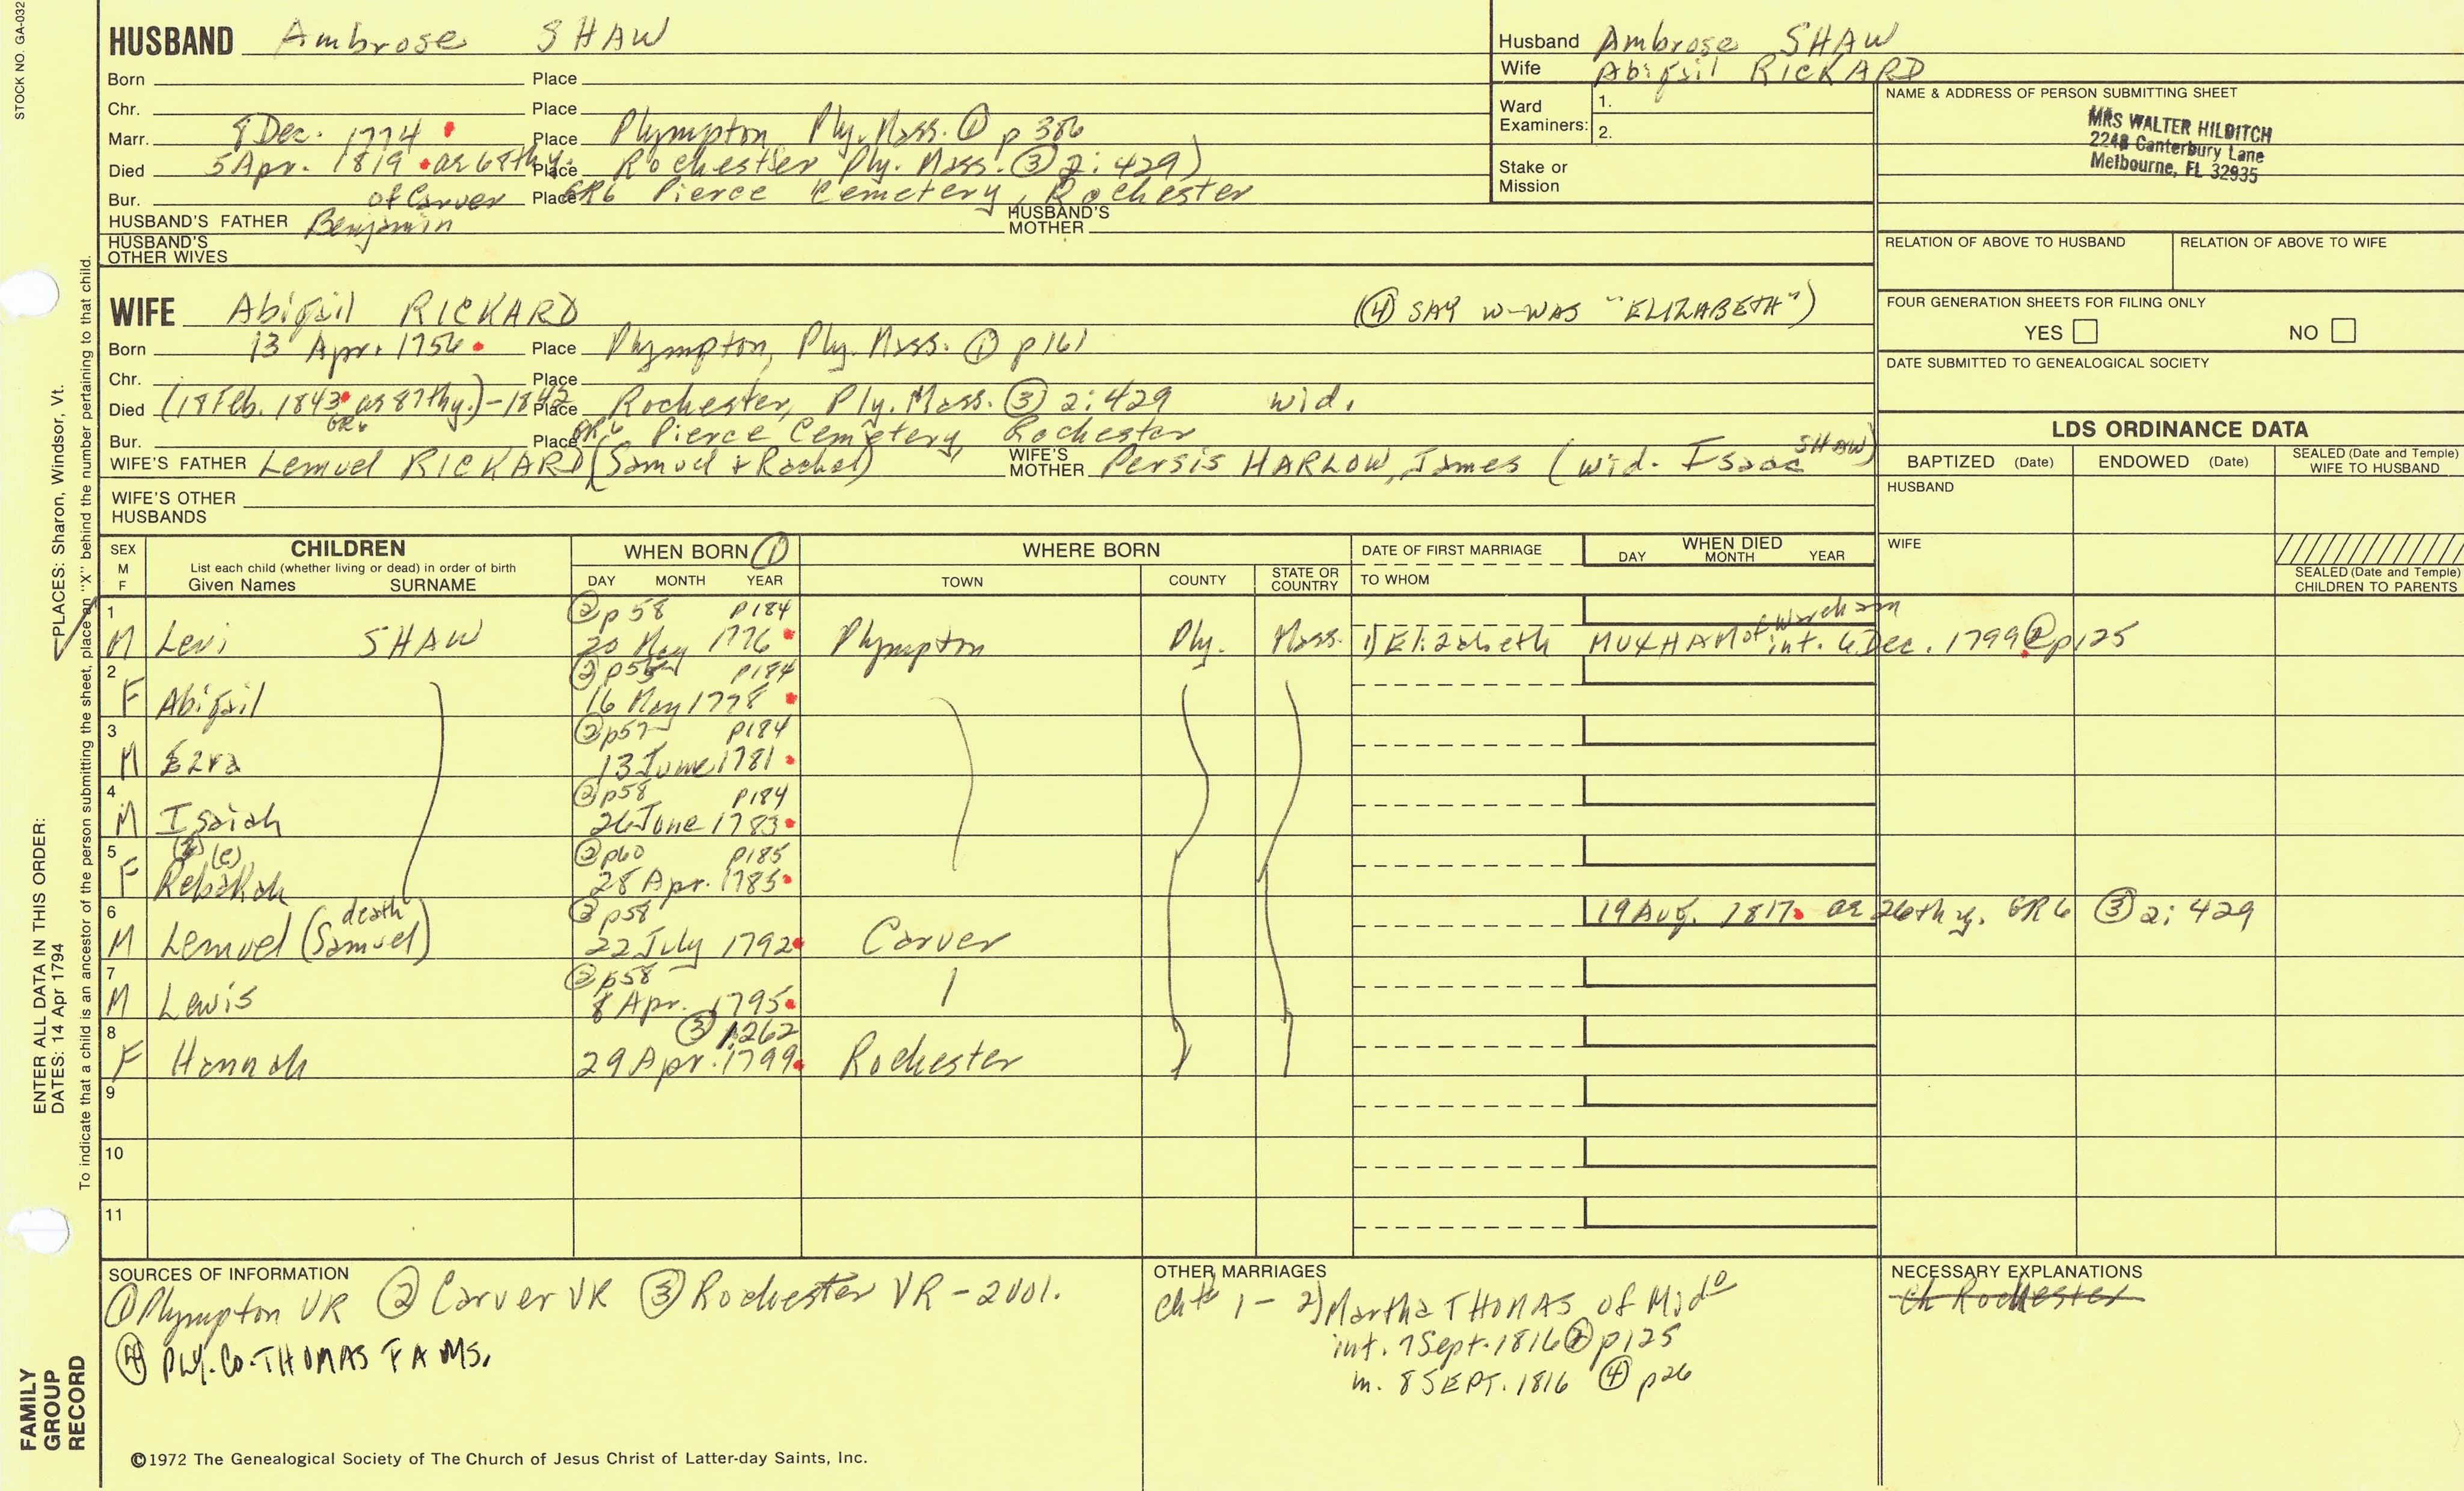 STOCK NO. GA-032
HUSBAND Ambrose SHAW
Born Place
Chr. Place
Marr. 8 Dec. 1774 Place Plympton, Ply. Mass. ① p 386
Died 5 Apr. 1819 ae 68th y. Place Rochester Ply. Mass. ③ 2:429)
Bur. of Carver Place GR6 Pierce Cemetery, Rochester
HUSBAND'S FATHER Benjamin HUSBAND'S MOTHER
HUSBAND'S OTHER WIVES
Husband Ambrose SHAW
Wife Abigail RICKARD
Ward Examiners: 1.
2.
Stake or Mission
NAME & ADDRESS OF PERSON SUBMITTING SHEET
MRS WALTER HILDITCH
2248 Canterbury Lane
Melbourne, FL 32935
RELATION OF ABOVE TO HUSBAND RELATION OF ABOVE TO WIFE
FOUR GENERATION SHEETS FOR FILING ONLY
YES NO
DATE SUBMITTED TO GENEALOGICAL SOCIETY
WIFE Abigail RICKARD (④ SAY W-WAS "ELIZABETH")
Born 13 Apr. 1756 Place Plympton, Ply. Mass. ① p161
Chr. Place
Died (18 Feb. 1843 ae 87th y.) - 1842 Place Rochester, Ply. Mass. ③ 2:429 wid.
GR6
Bur. Place GR6 Pierce Cemetery, Rochester
WIFE'S FATHER Lemuel RICKARD (Samuel + Rachel) WIFE'S MOTHER Persis HARLOW, James (wid. Isaac SHAW)
WIFE'S OTHER HUSBANDS
LDS ORDINANCE DATA
BAPTIZED (Date) ENDOWED (Date) SEALED (Date and Temple) WIFE TO HUSBAND
HUSBAND
WIFE
SEALED (Date and Temple) CHILDREN TO PARENTS
SEX M F
CHILDREN
List each child (whether living or dead) in order of birth
Given Names SURNAME
WHEN BORN ①
DAY MONTH YEAR
WHERE BORN
TOWN COUNTY STATE OR COUNTRY
DATE OF FIRST MARRIAGE
TO WHOM
WHEN DIED
DAY MONTH YEAR
1 ② p 58 P184
M Levi SHAW 20 May 1776 Plympton Ply. Mass. 1) Elizabeth MUXHAM of Wareham int. 6 Dec. 1799 ② p125
2 ② p56 P184
F Abigail 16 May 1778
3 ② p57 P184
M Ezra 13 June 1781
4 ② p58 P184
M Isaiah 26 June 1783
5 (2) (e) ② p60 P185
F Rebakah 28 Apr. 1785
6 death ② p58
M Lemuel (Samuel) 22 July 1792 Carver 19 Aug. 1817 ae 26th y. GR6 ③ 2:429
7 ② p58
M Lewis 8 Apr. 1795
8 ③ 1:262
F Hannah 29 Apr. 1799 Rochester
9
10
11
SOURCES OF INFORMATION
① Plympton VR ② Carver VR ③ Rochester VR - 2 vol.
④ PLY. CO. THOMAS FAMS.
OTHER MARRIAGES
Ch# 1 - 2) Martha THOMAS of Mido
int. 7 Sept. 1816 ② p125
m. 8 SEPT. 1816 ④ p26
NECESSARY EXPLANATIONS
Ch Rochester
©1972 The Genealogical Society of The Church of Jesus Christ of Latter-day Saints, Inc.
FAMILY GROUP RECORD
ENTER ALL DATA IN THIS ORDER:
DATES: 14 Apr 1794
PLACES: Sharon, Windsor, Vt.
To indicate that a child is an ancestor of the person submitting the sheet, place an "X" behind the number pertaining to that child.